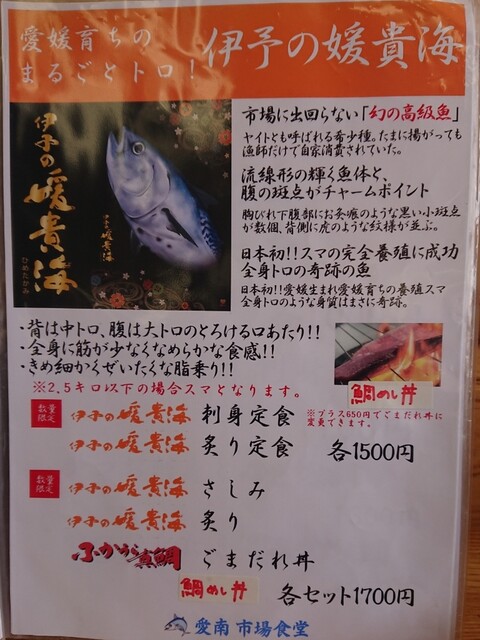 愛媛育ちの
まるごとトロ！
伊予の媛貴海
伊予の媛貴海
ひめたかみ
伊予の媛貴海
市場に出回らない「幻の高級魚」
ヤイトとも呼ばれる希少種。たまに揚がっても
漁師だけで自家消費されていた。
流線形の輝く魚体と、
腹の斑点がチャームポイント
胸びれ下腹部にお灸痕のような黒い小斑点
が数個、背側に虎のような紋様が並ぶ。
日本初!!スマの完全養殖に成功
全身トロの奇跡の魚
日本初!!愛媛生まれ愛媛育ちの養殖スマ
全身トロのような身質はまさに奇跡。
・背は中トロ、腹は大トロのとろける口あたり!!
・全身に筋が少なくなめらかな食感!!
・きめ細かくぜいたくな脂乗り!!
※2.5キロ以下の場合スマとなります。
鯛めし丼
数量限定
伊予の媛貴海 刺身定食
※プラス650円でごまだれ丼に
変更できます。
伊予の媛貴海 炙り定食 各1500円
数量限定
伊予の媛貴海 さしみ
伊予の媛貴海 炙り
ふかうら真鯛 ごまだれ丼
鯛めし丼 各セット1700円
愛南 市場食堂